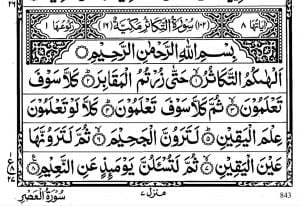 اٰیاتُهَا ٨ (١٠٢) سُوْرَةُ التَّكَاثُرِ مَكِّیَّةٌ (١٦) رُكُوْعُهَا ١
بِسْمِ اللّٰهِ الرَّحْمٰنِ الرَّحِیْمِ
اَلْهٰىكُمُ التَّكَاثُرُ ١ حَتّٰى زُرْتُمُ الْمَقَابِرَ ٢ كَلَّا سَوْفَ
تَعْلَمُوْنَ ٣ ثُمَّ كَلَّا سَوْفَ تَعْلَمُوْنَ ٤ كَلَّا لَوْ تَعْلَمُوْنَ
عِلْمَ الْیَقِیْنِ ٥ لَتَرَوُنَّ الْجَحِیْمَ ٦ ثُمَّ لَتَرَوُنَّهَا
عَیْنَ الْیَقِیْنِ ٧ ثُمَّ لَتُسْـَٔلُنَّ یَوْمَىِٕذٍ عَنِ النَّعِیْمِ ٨
سُوْرَةُ الْعَصْرِ منزل ٧ 843